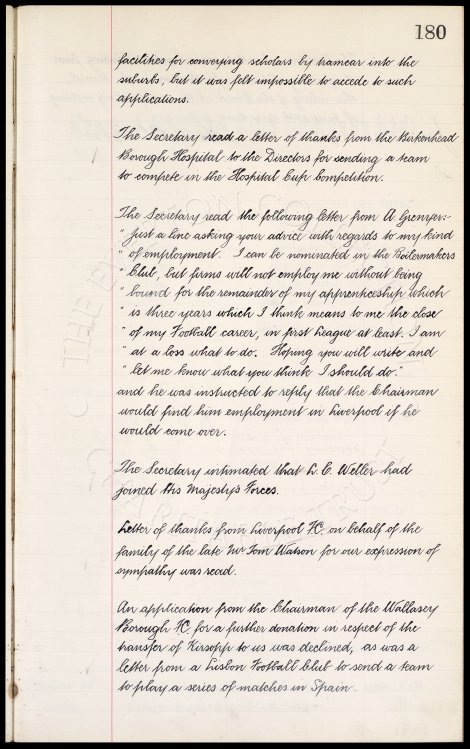 180
facilities for conveying scholars by tramcar into the
suburbs, but it was felt impossible to accede to such
applications.
The Secretary read a letter of thanks from the Birkenhead
Borough Hospital to the Directors for sending a team
to compete in the Hospital Cup Competition.
The Secretary read the following letter from A Grenyer:-
" Just a line asking your advice with regards to my kind
" of employment. I can be nominated in the Boilermakers
" Club, but firms will not employ me without being
" bound for the remainder of my apprenticeship which
" is three years which I think means to me the close
" of my Football career, in first League at least. I am
" at a loss what to do. Hoping you will write and
" let me know what you think I should do."
and he was instructed to reply that the Chairman
would find him employment in Liverpool if he
would come over.
The Secretary intimated that L. C. Weller had
joined His Majestys Forces.
Letter of thanks from Liverpool F.C. on behalf of the
family of the late Mr Tom Watson for our expression of
sympathy was read.
An application from the Chairman of the Wallasey
Borough F.C. for a further donation in respect of the
transfer of Kirsopp to us was declined, as was a
letter from a Lisbon Football Club to send a team
to play a series of matches in Spain.